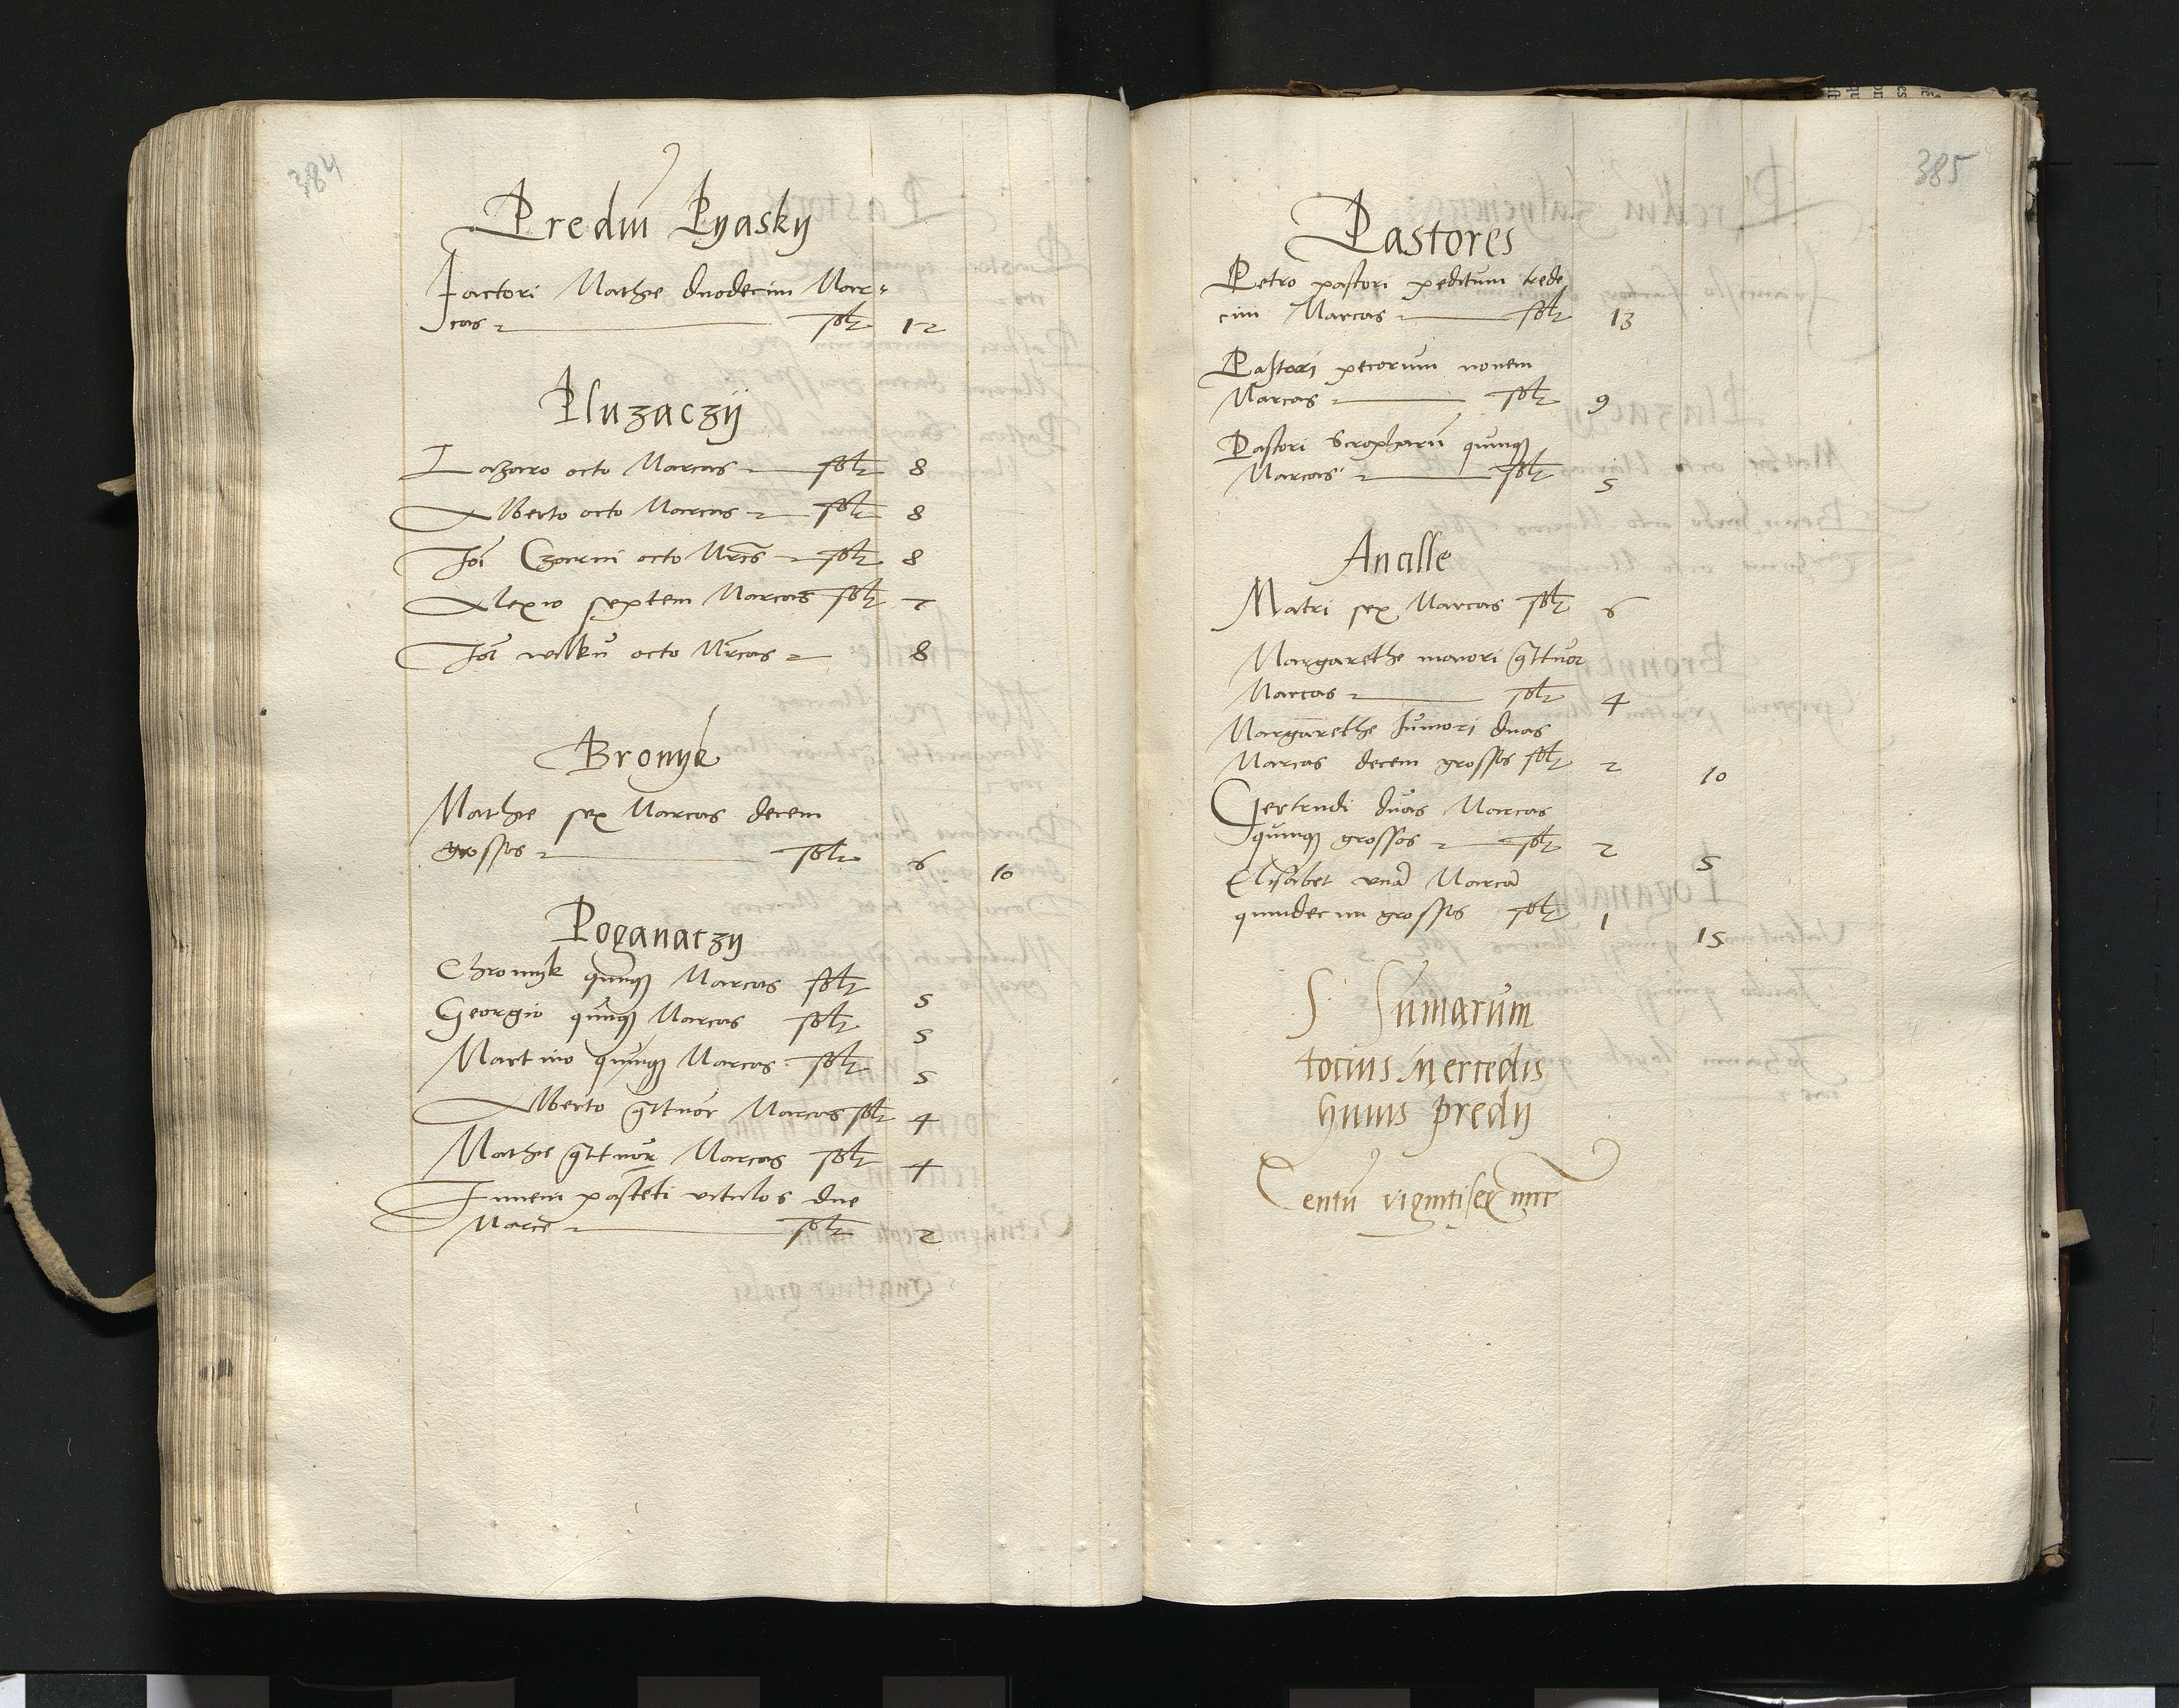 384
Prediū Pyasky
Factori Mathie duodecim Mar=
cas solt 12
Pluzaczÿ
Lazaro octo Marcas solt 8
Alberto octo Marcas solt 8
Joī Czarni octo Mrcs solt 8
Alexio septem Marcas solt 7
Joī wilkū octo Mrcas 8
Bronyk
Mathie sex Marcas decem
grossos solt 6 10
Poganaczÿ
Chromyk quinqꝫ Marcas solt 5
Georgio quinqꝫ Marcas solt 5
Martino quinqꝫ Marcas solt 5
Alberto q̄ttuor Marcas solt 4
Mathie q̄ttuor Marcas solt 4
vitulos due
Marce solt 2
385
Pastores
Petro pastori peditum trede
cim Marcas solt 13
Pastori pecorum novem
Marcas solt 9
Pastori Scropharū quinqꝫ
Marcas solt 5
Ancille
Matri sex Marcas solt 6
Margarethe maiori q̄ttuor
Marcas solt 4
Margarethe Iuniori duas
Marcas decem grossos solt 2 10
Gertrudi duas Marcas
quinqꝫ grossos solt 2 5
Elisabet unā Marcā
quindecim grossos solt 1 15
S Sumarum
tocius Mercedis
huius predÿ
Centū vigintisex mrc